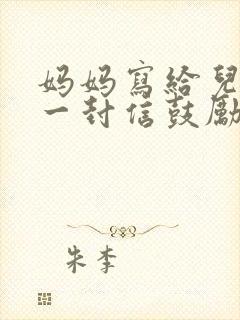 妈妈寫給兒
一封信鼓勵
朱李